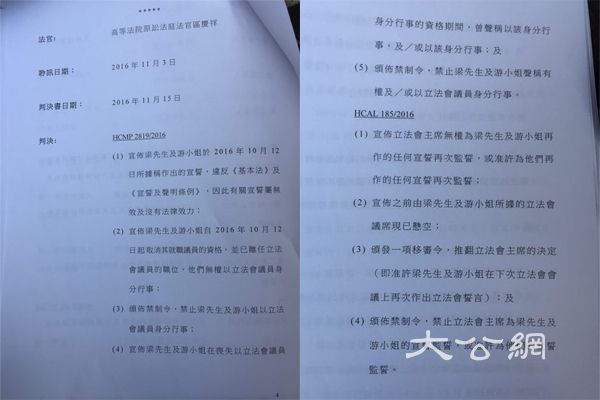 *****
法官： 高等法院原訟法庭法官區慶祥
聆訊日期： 2016 年 11 月 3 日
判決書日期： 2016 年 11 月 15 日
判決： HCMP 2819/2016
(1) 宣佈梁先生及游小姐於 2016 年 10 月 12
日所據稱作出的宣誓，違反《基本法》及
《宣誓及聲明條例》，因此有關宣誓屬無
效及沒有法律效力；
(2) 宣佈梁先生及游小姐自 2016 年 10 月 12
日起取消其就職議員的資格，並已離任立法
會議員的職位，他們無權以立法會議員身
分行事；
(3) 頒佈禁制令，禁止梁先生及游小姐以立法
會議員身分行事；
(4) 宣佈梁先生及游小姐在喪失以立法會議員
4
身分行事的資格期間，曾聲稱以該身分行
事，及／或以該身分行事；及
(5) 頒佈禁制令，禁止梁先生及游小姐聲稱有
權及／或以立法會議員身分行事。
HCAL 185/2016
(1) 宣佈立法會主席無權為梁先生及游小姐再
作的任何宣誓再次監誓，或准許為他們再
作的任何宣誓再次監誓；
(2) 宣佈之前由梁先生及游小姐所據的立法會
議席現已懸空；
(3) 頒發一項移審令，推翻立法會主席的決定
（即准許梁先生及游小姐在下次立法會會
議上再次作出立法會誓言）；及
(4) 頒佈禁制令，禁止立法會主席為梁先生及
游小姐的宣誓監誓，或准許為他們的宣誓
監誓。
大公網